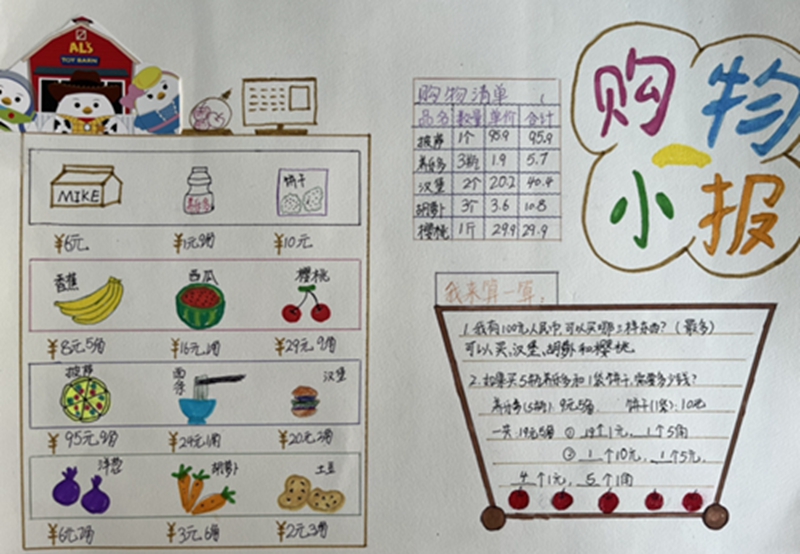 AL'S
TOY BARN
MIKE
养乐多
饼干
¥6元
¥1元9角
¥10元
香蕉
西瓜
樱桃
¥8元5角
¥16元1角
¥29元9角
披萨
面条
汉堡
¥95元9角
¥24元1角
¥20元2角
洋葱
胡萝卜
土豆
¥6元7角
¥3元6角
¥2元3角
购物清单
品名 数量 单价 合计
披萨 1个 95.9 95.9
养乐多 3瓶 1.9 5.7
汉堡 2个 20.2 40.4
胡萝卜 3个 3.6 10.8
樱桃 1斤 29.9 29.9
购物
小报
我来算一算:
1.我有100元人民币,可以买哪三样东西?(最多)
可以买:汉堡、胡萝卜和樱桃
2.如果买5瓶养乐多和1袋饼干,需要多少钱?
养乐多(5瓶):9元5角 饼干(1袋):10元
一共:19元5角 ① 19个1元,1个5角
② 1个10元,1个5元,
4个1元,5个1角